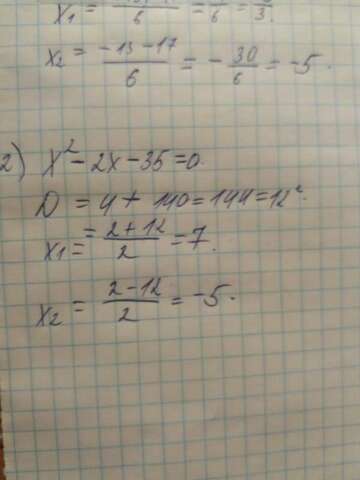 x₁ = ――/6 = ―/6 = ―/3.
x₂ = (-13-17)/6 = -30/6 = -5.
2) x²-2x-35=0.
D = 4+140=144=12².
x₁ = (2+12)/2 = 7.
x₂ = (2-12)/2 = -5.